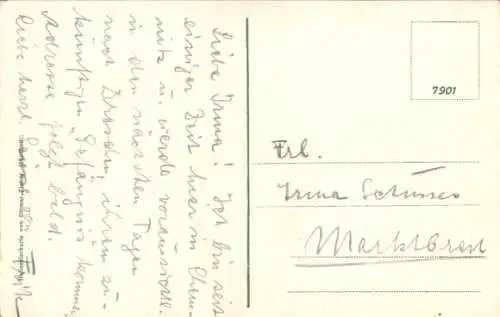 Liebe Irma! Ich bin seit
einiger Zeit hier in Chem-
nitz u. werde voraussichtl.
in den nächsten Tagen
nach Dresden, ihrem zu-
künftigen „Gefängnis" kommen.
Adresse folgt bald.
Liebe herzl.
7901
Frl.
Irma
Marktbreit